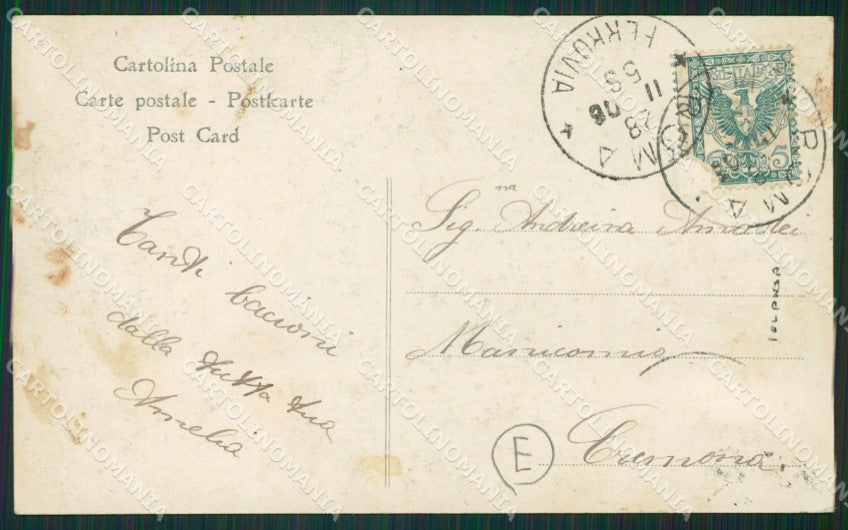 Cartolina Postale
Carte postale - Postkarte
Post Card
Tanti bacioni
dalla tutta tua
Amelia
Sig.na Andreina
Manicomio
Cremona
E
ROMA
FERROVIA
28
11
5 S
06
ROMA
5
CARTOLINOMANIA